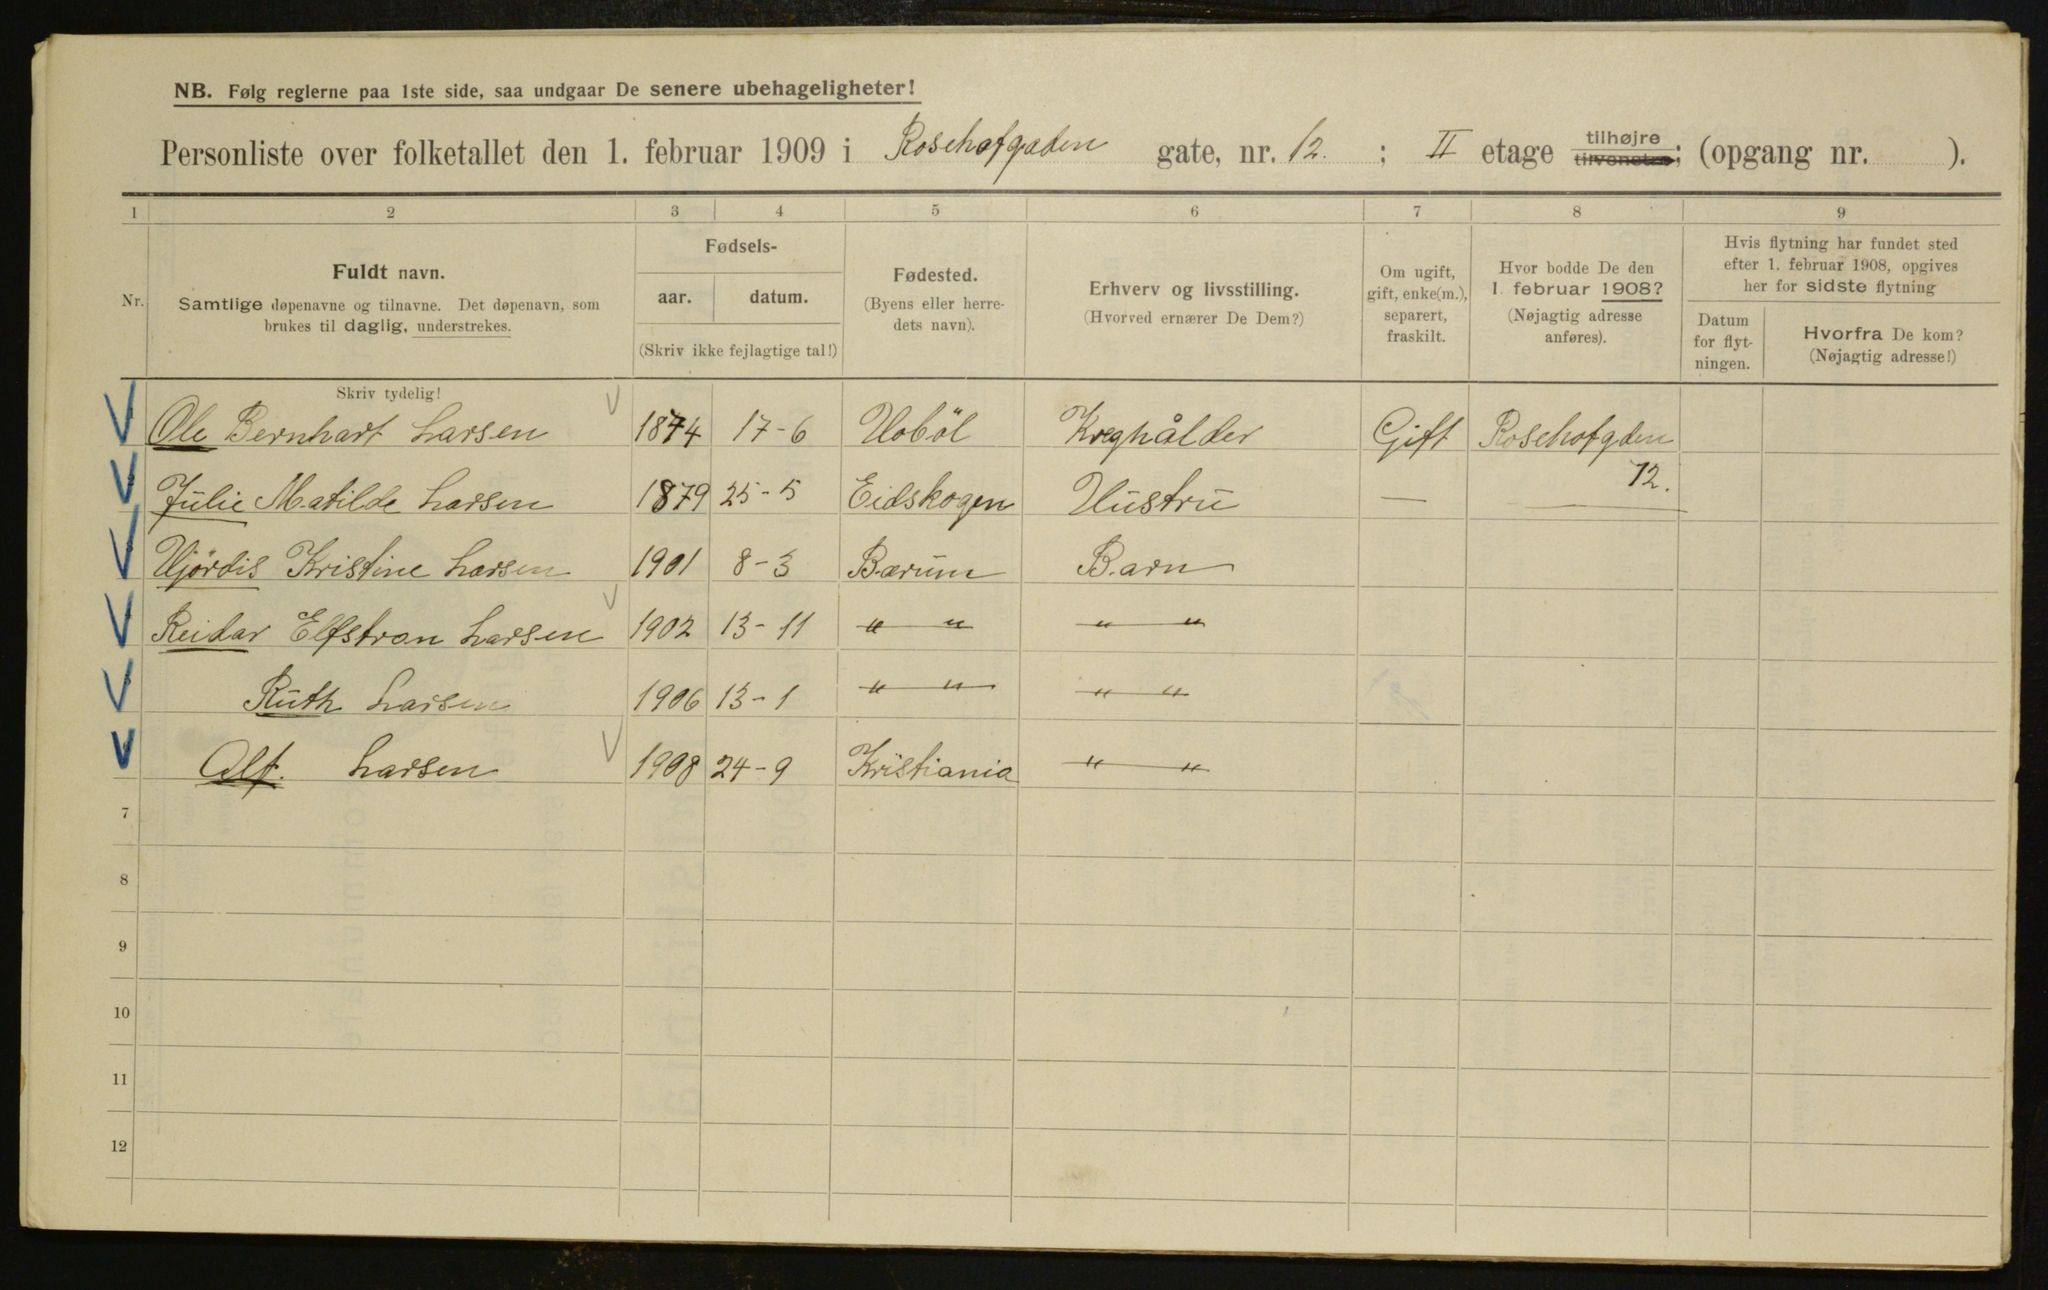 NB. Følg reglerne paa 1ste side, saa undgaar De senere ubehageligheter!
Personliste over folketallet den 1. februar 1909 i Rosehofgaden gate, nr. 12. ; II etage tilhøjre tilvenstre; (opgang nr. ).
1 2 3 4 5 6 7 8 9
Nr.
Fuldt navn.
Samtlige døpenavne og tilnavne. Det døpenavn, som
brukes til daglig, understrekes.
Fødsels-
aar. datum.
(Skriv ikke fejlagtige tal!)
Fødested.
(Byens eller herre-
dets navn).
Erhverv og livsstilling.
(Hvorved ernærer De Dem?)
Om ugift,
gift, enke(m.),
separert,
fraskilt.
Hvor bodde De den
1. februar 1908?
(Nøjagtig adresse
anføres).
Hvis flytning har fundet sted
efter 1. februar 1908, opgives
her for sidste flytning
Datum
for flyt-
ningen.
Hvorfra De kom?
(Nøjagtig adresse!)
Skriv tydelig!
Ole Bernhart Larsen 1874 17-6 Hoböl Gift Rosehofgden
12.
Julie Matilde Larsen 1879 25-5 Eidskogen Hustru —
Hjördis Kristine Larsen 1901 8-3 Bærum Barn
Reidar Elfstron Larsen 1902 13-11 " " " "
Ruth Larsen 1906 13-1 " " " "
Alf. Larsen 1908 24-9 Kristiania " "
7
8
9
10
11
12